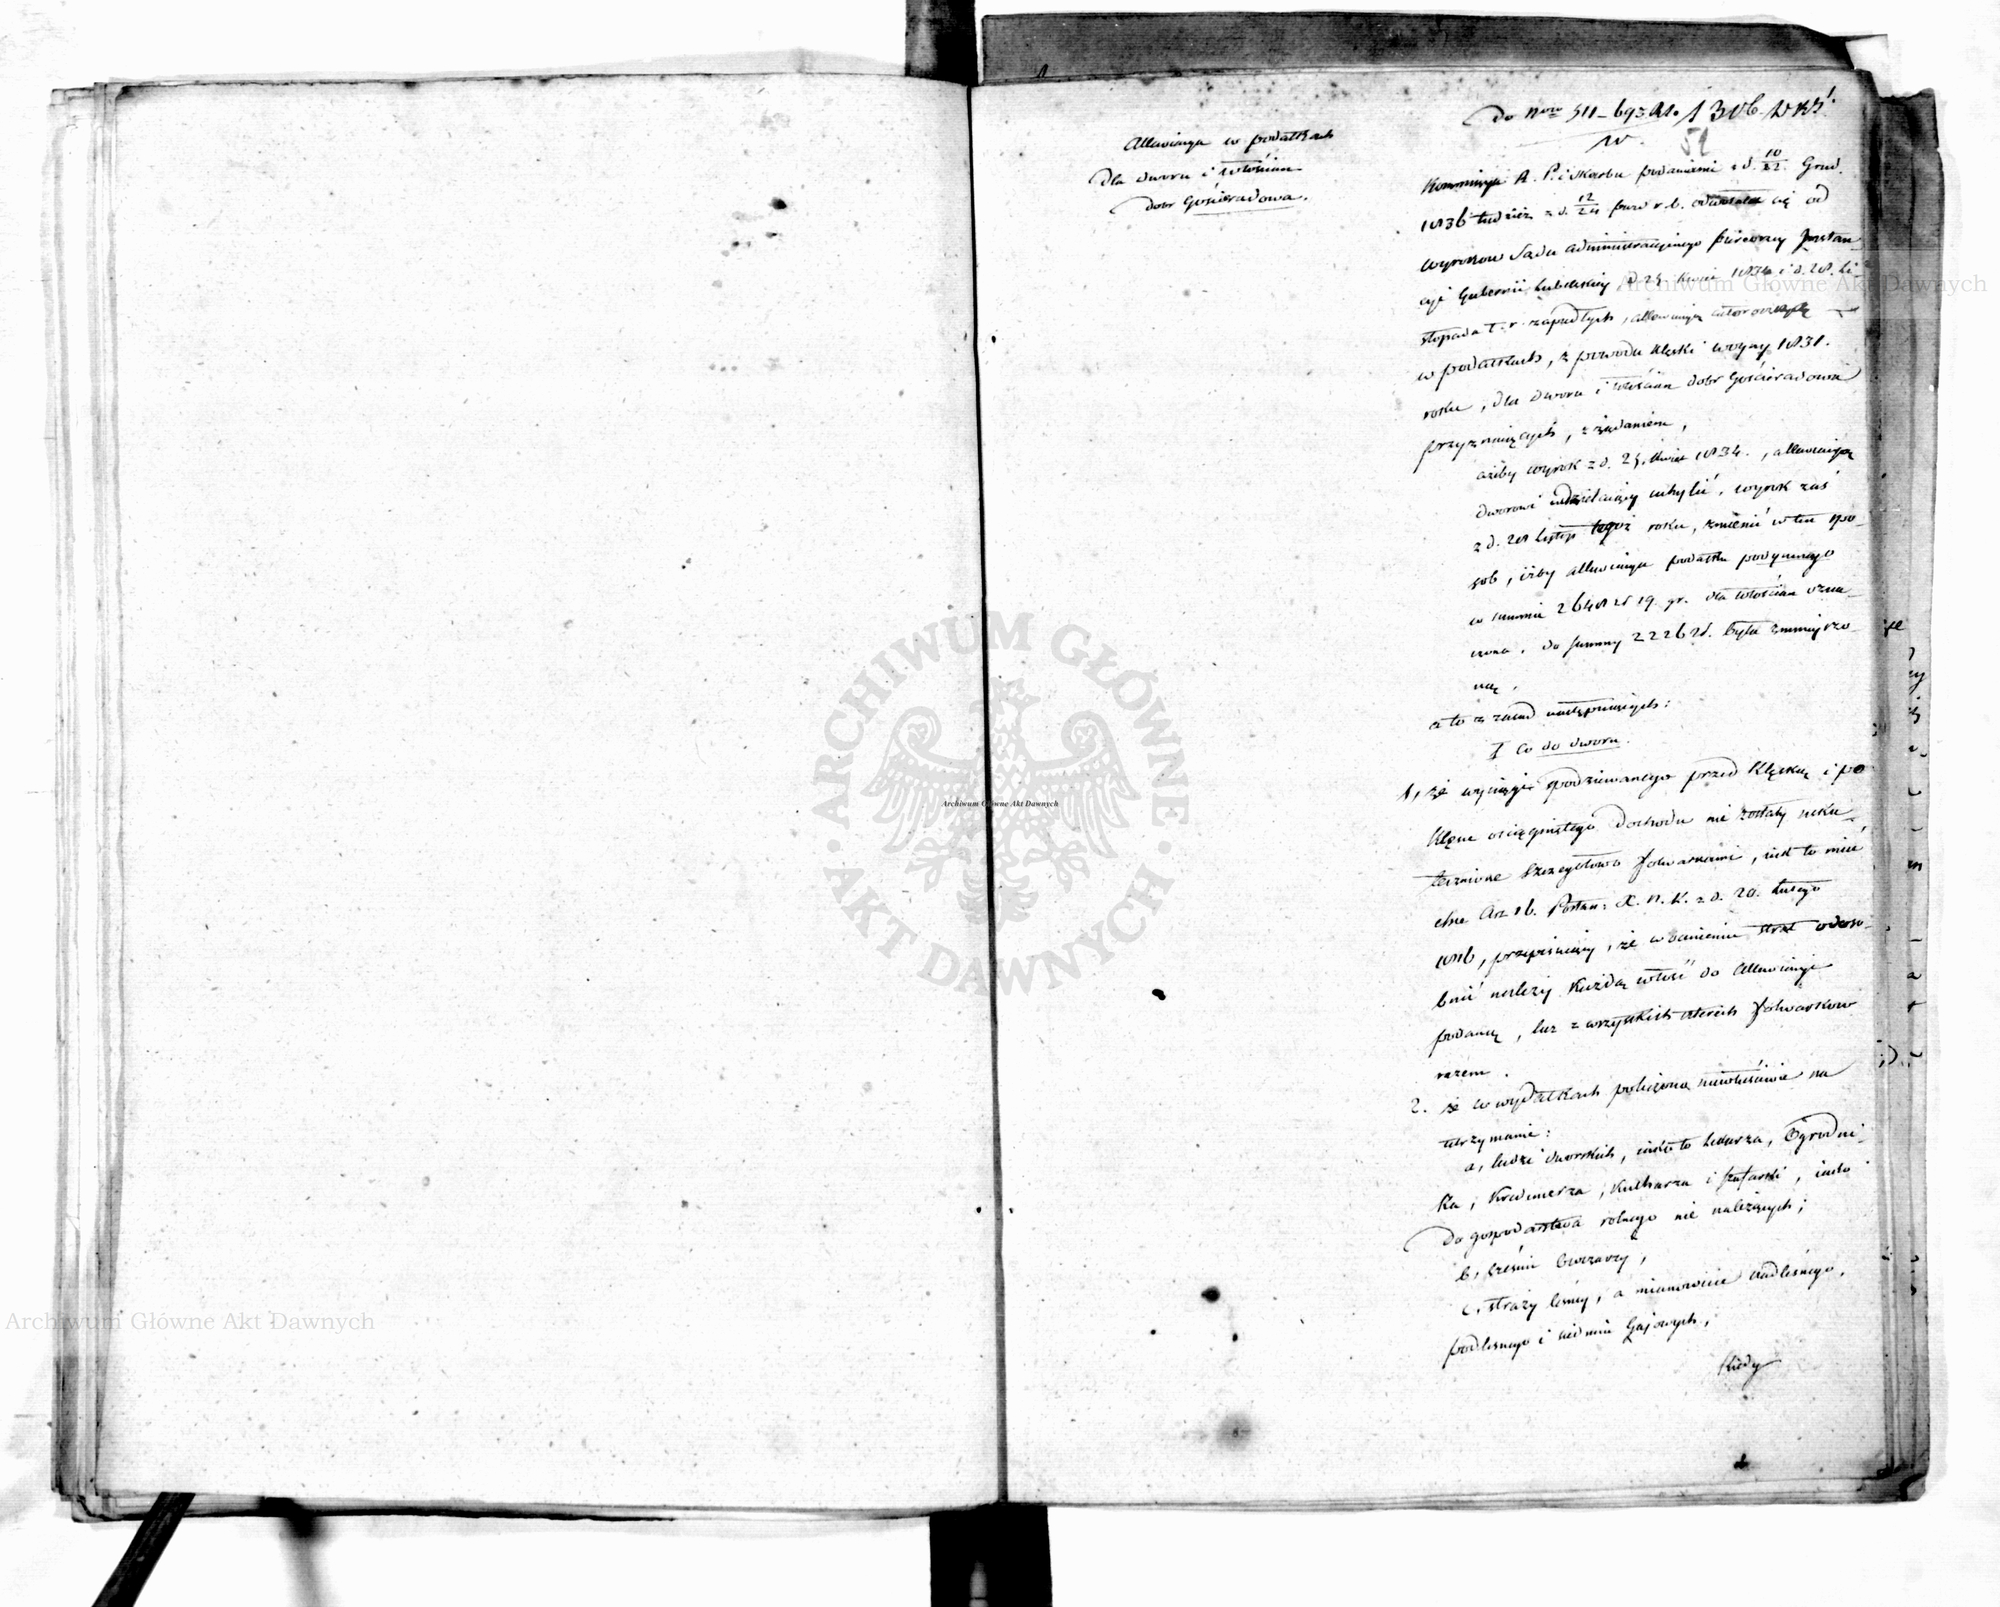 Allewiacya w podatkach
dla dworu i włościan
dobr Gościeradowa.
Do Nrow 511–693
52
Kommissya R. P. i Skarbu podaniami z d. 10/22 Grud.
1836 tudzież z d. 12/24 r. b. odwołała się od
wyrokow Sądu Administracyinego pierwszey Instan-
cyi Gubernii Lubelskiey d. 25 Kwiet 1834 i d. 28. Li-
stopada t. r. zapadłych, allewiacyą
w podatkach, z powodu klęski woyny 1831.
roku, dla dworu i włościan dobr Gościeradowa
przyznaiących, z żądaniem,
ażeby wyrok z d. 25. Kwiet 1834., allewiacyą
dworowi udzielaiący uchylić, wyrok zaś
z d. 28 Listop tegoż roku, zmienić w ten spo-
sob, iżby allewiacya podatku podymnego
w summie 2648 zł 19. gr. dla włościan ozna-
czona, do summy 2226 zł. była zmnieyszo-
ną,
a to z zasad następuiących:
I Co do dworu.
1, że wyciągi spodziewanego przed klęską i po
klęsce osiągniętego dochodu nie zostały usku-
tecznione szczegółowo folwarkami, iak to mieć
chce Art 16. Postan: X. N. K. z d. 20. Lutego
1816, przepisuiący, że w ocenieniu strat odoso-
bnić należy każdą włość do allewiacyi
podaną, lecz z wszystkich czterech folwarkow
razem.
2. że w wydatkach policzono niewłaściwie na
utrzymanie:
a, ludzi dworskich, iako to Lekarza, Ogrodni-
ka, Kredencerza, Kucharza i Szafarki, iako
do gospodarstwa rolnego nie należących;
b, sześciu Owczarzy,
c, straży leśney, a mianowicie nadleśnego,
podleśnego i siedmiu Gajowych,
Kiedy
Archiwum Główne Akt Dawnych
Archiwum Główne Akt Dawnych
Archiwum Główne Akt Dawnych
ARCHIWUM GŁÓWNE · AKT DAWNYCH ·